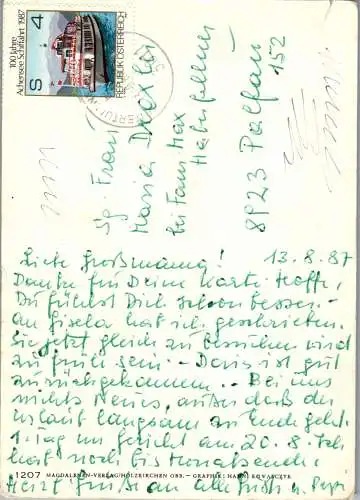 100 Jahre
Achensee Schiffahrt 1987
S 4
REPUBLIK ÖSTERREICH
Sg. Frau
Maria Drexler
bei Fam. Max
8923 Palfau
152
Liebe Großmama! 13.8.87
Danke für Deine Karte. Hoffe,
Du fühlst Dich schon besser. -
An Gisela hab ich geschrieben.
Sie jetzt gleich zu besuchen wird
zu früh sein. - Doris ist gut
zurückgekommen. - Bei uns
nichts Neues, außer daß der
Urlaub langsam zu Ende geht.
1. Tag im Gericht am 20.8. Ich
hab noch bis Monatsende.
Herzl. Grüße an alle
1207 MAGDALENEN-VERLAG HOLZKIRCHEN OBB. – GRAFIK: HANNI KOWARCZYK